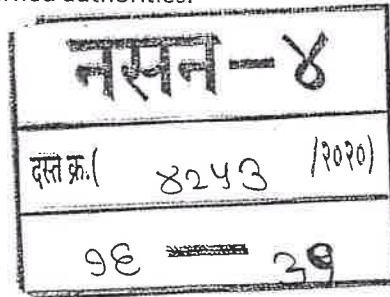 authorities.
नसन-४
दस्त क्र.( ४२५३ /२०२०)
१६ — ३१